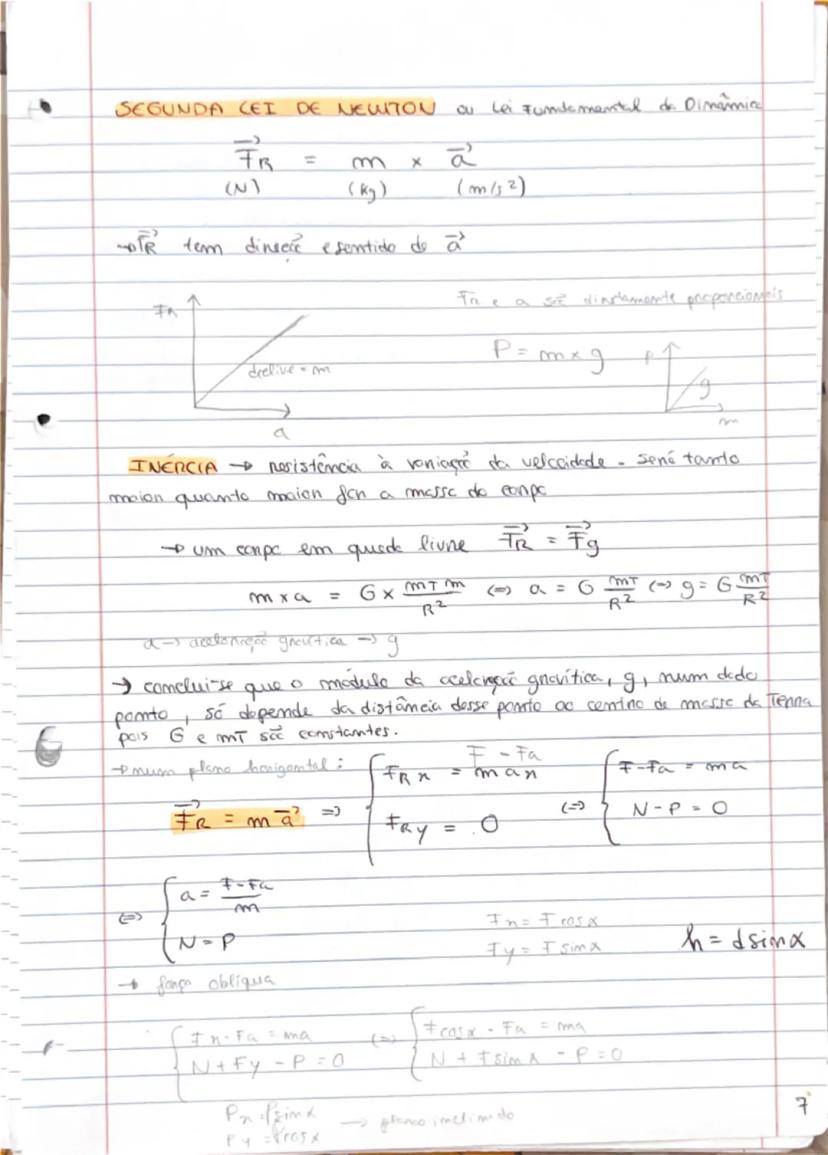 SEGUNDA LEI DE NEWTON ou Lei Fundamental da Dinâmica
F⃗R = m × a⃗
(N) (kg) (m/s²)
→ F⃗R tem direção e sentido de a⃗
FR e a são diretamente proporcionais
FR
declive = m
a
P = m × g
P
g
m
INÉRCIA → resistência à variação da velocidade. será tanto
maior quanto maior for a massa do corpo
→ um corpo em queda livre F⃗R = F⃗g
m × a = G × mT m / R² (=) a = G mT / R² (=) g = G mT / R²
a → aceleração gravítica → g
→ conclui-se que o módulo da aceleração gravítica, g, num dado
ponto, só depende da distância desse ponto ao centro de massa da Terra
pois G e mT são constantes.
→ num plano horizontal:
F - Fa
F⃗R = m a⃗ => { FRx = m ax (=) { F - Fa = ma
FRy = 0 N - P = 0
(=) { a = F - Fa / m
N = P
Fx = F cos α
Fy = F sin α
h = d sin α
→ força oblíqua
{ Fx - Fa = ma (=) { F cos α - Fa = ma
N + Fy - P = 0 N + F sin α - P = 0
Px = P sin α
Py = P cos α → plano inclinado
7